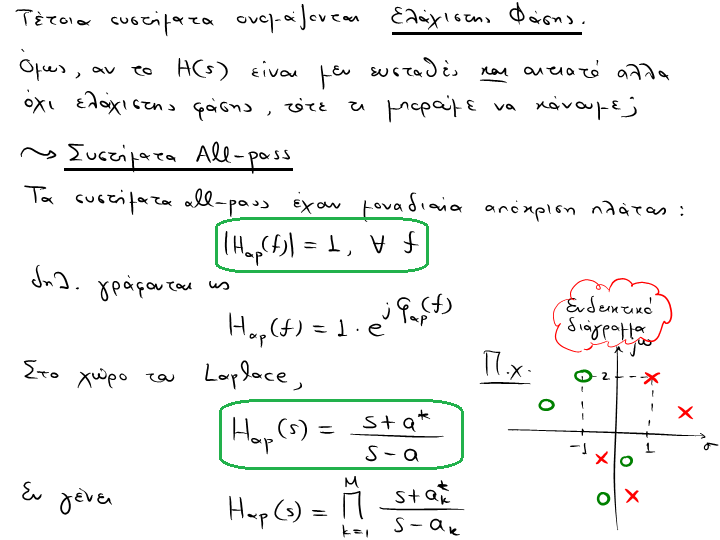 Τέτοια συστήματα ονομάζονται Ελάχιστης Φάσης.
Όμως, αν το H(s) είναι μεν ευσταθές και αιτιατό αλλά
όχι ελάχιστης φάσης, τότε τι μπορούμε να κάνουμε;
⤳ Συστήματα All-pass
Τα συστήματα all-pass έχουν μοναδιαία απόκριση πλάτους:
|H_ap(f)| = 1, ∀ f
δηλ. γράφονται ως
H_ap(f) = 1 · e^{jφ_ap(f)}
Στο χώρο του Laplace,
H_ap(s) = (s + a*) / (s - a)
Εν γένει
H_ap(s) = ∏_{k=1}^{M} (s + a_k*) / (s - a_k)
Π.χ.
Ενδεικτικό
διάγραμμα
jω
2
-1
1
σ